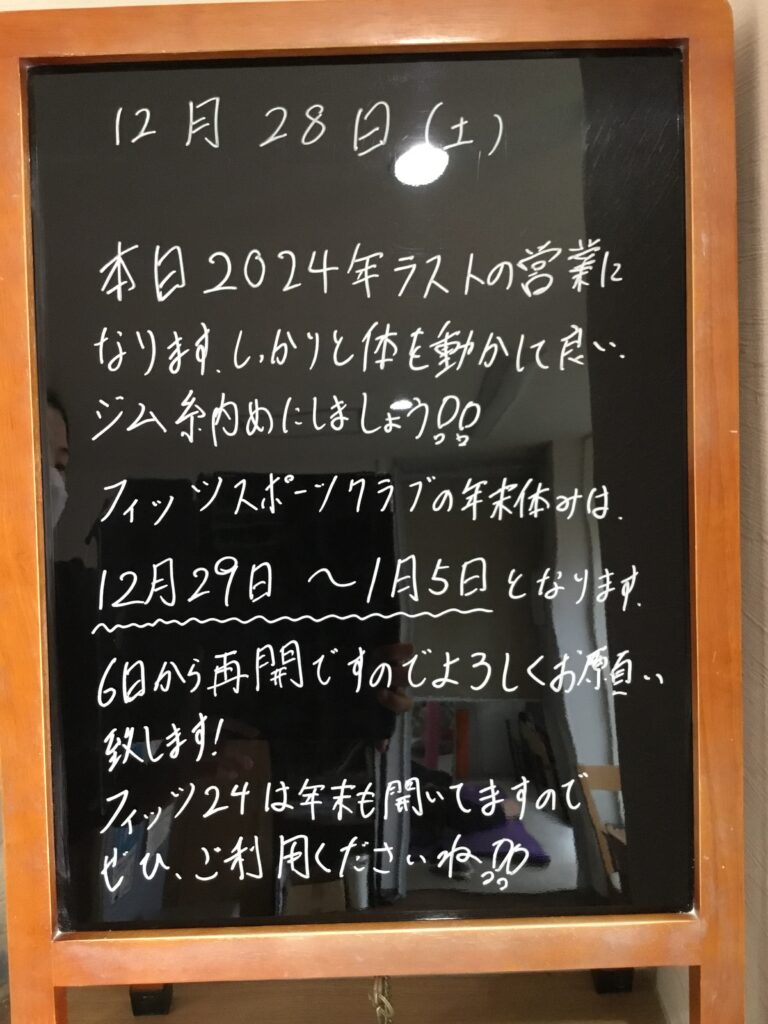 12月28日(土)
本日2024年ラストの営業に
なります。しっかりと体を動かして良い、
ジム納めにしましょう!!
フィッツスポーツクラブの年末休みは、
12月29日 ~1月5日となります。
6日から再開ですのでよろしくお願い
致します!
フィッツ24は年末も開いてますので
ぜひ、ご利用くださいね!!